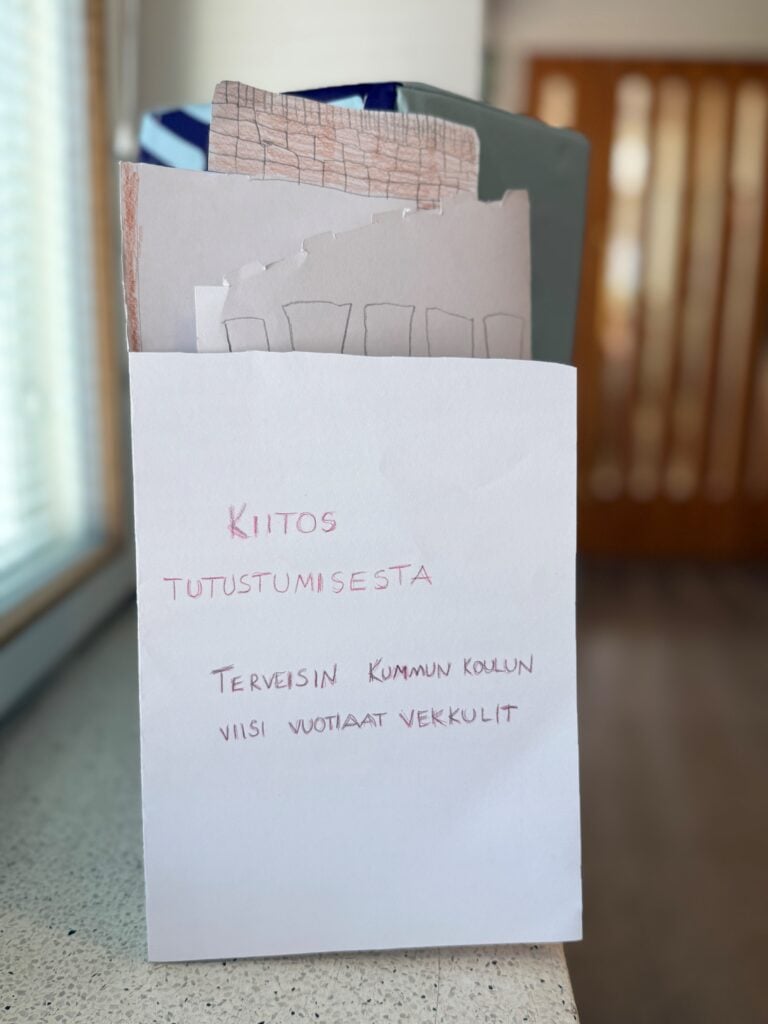 KIITOS
TUTUSTUMISESTA
TERVEISIN KUMMUN KOULUN
VIISI VUOTIAAT VEKKULIT